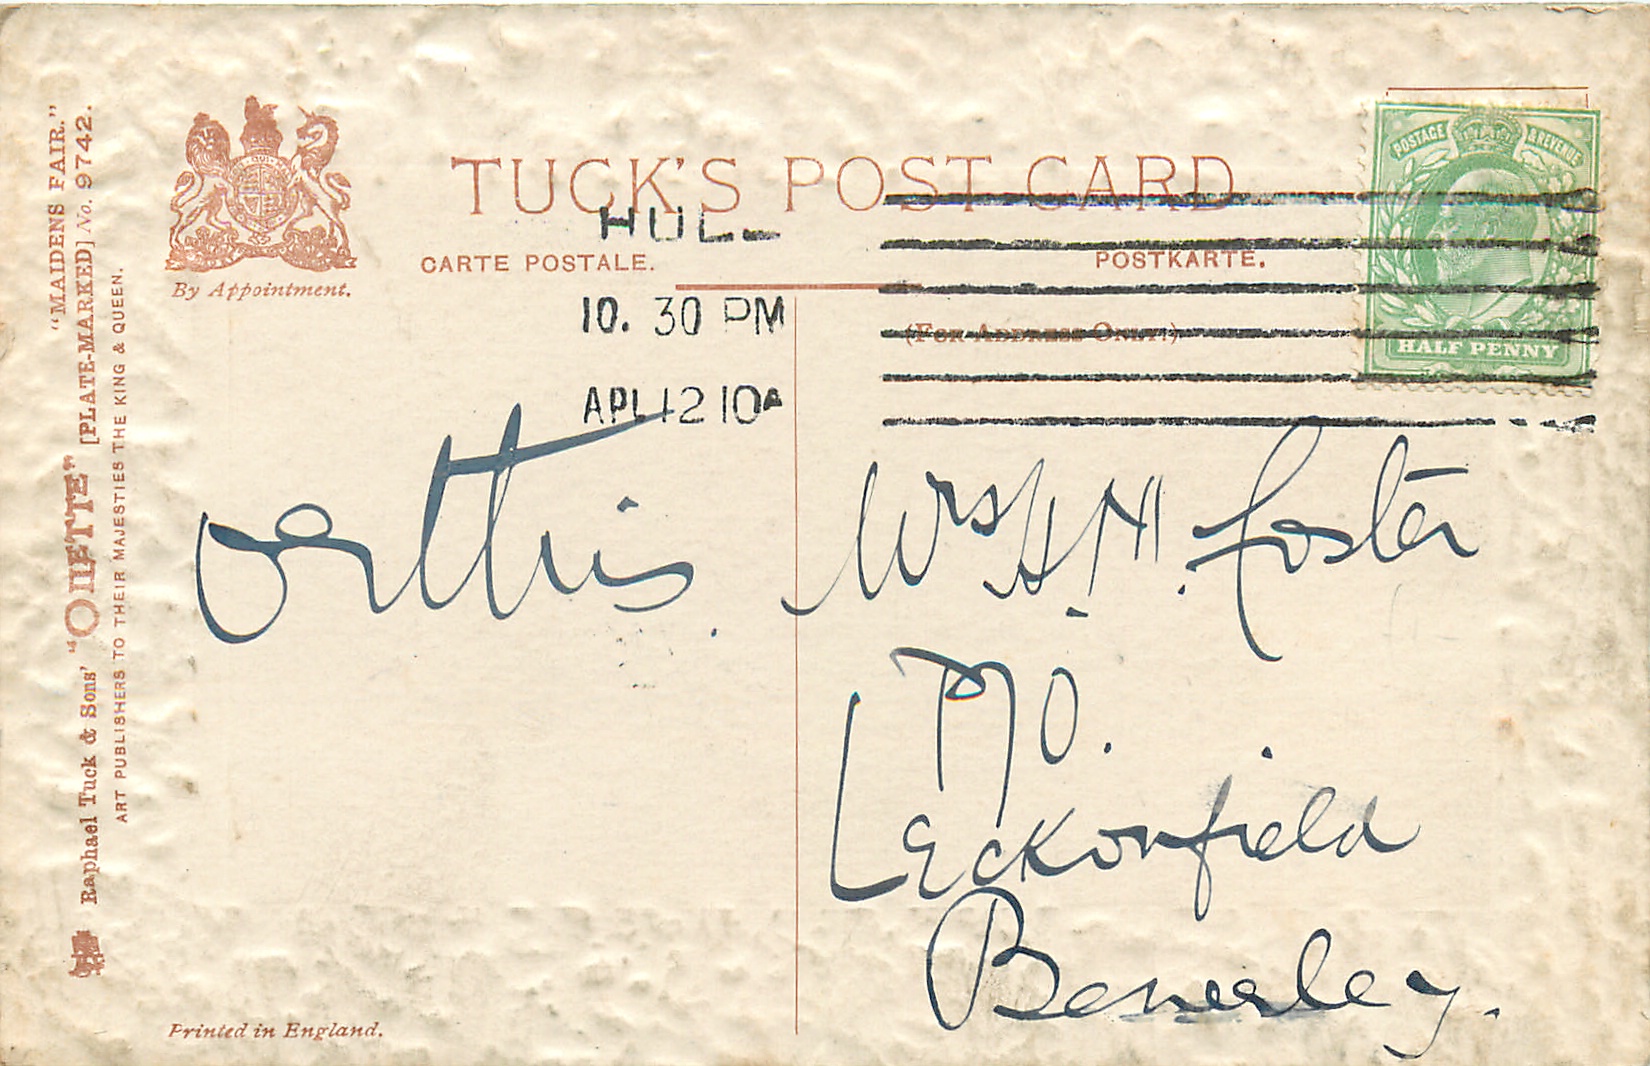 TUCK'S POST CARD
CARTE POSTALE.
POSTKARTE.
By Appointment.
(FOR ADDRESS ONLY.)
HULL
10. 30 PM
AP 12 10A
POSTAGE & REVENUE
HALF PENNY
"MAIDENS FAIR."
Raphael Tuck & Sons' "OILETTE" [PLATE-MARKED] No. 9742.
ART PUBLISHERS TO THEIR MAJESTIES THE KING & QUEEN.
Mrs H. M. Foster
P.O.
Leckonfield
Beverley.
Printed in England.